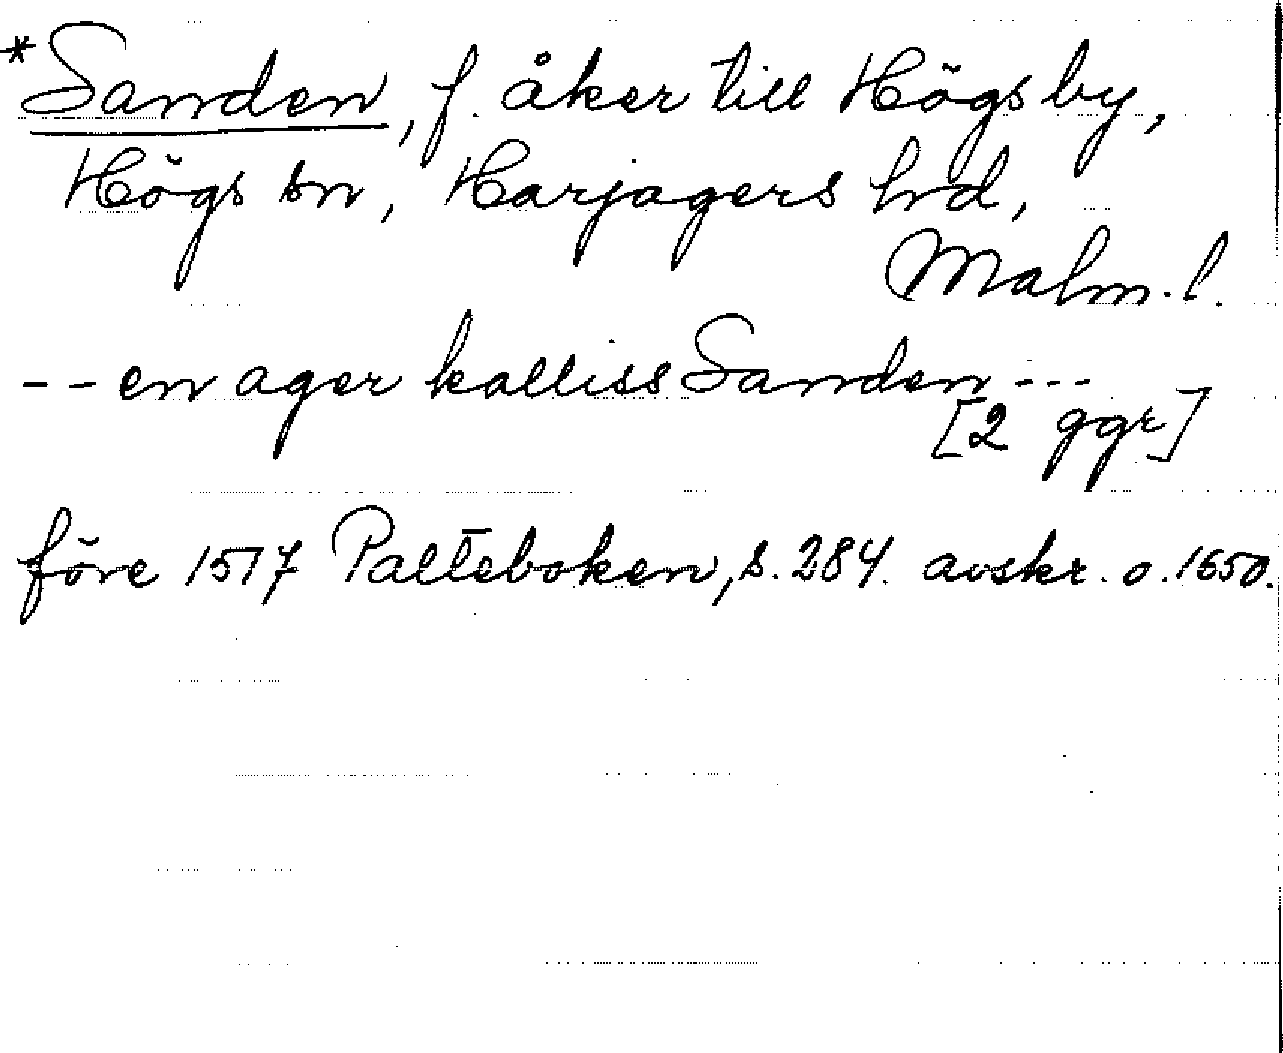 *Sanden, f. åker till Högs by,
Högs sn, Harjagers hd,
Malm. l.
-- en ager kalliss Sanden ---
[2 ggr]
före 1517 Palteboken, s. 284. avskr. o. 1650.